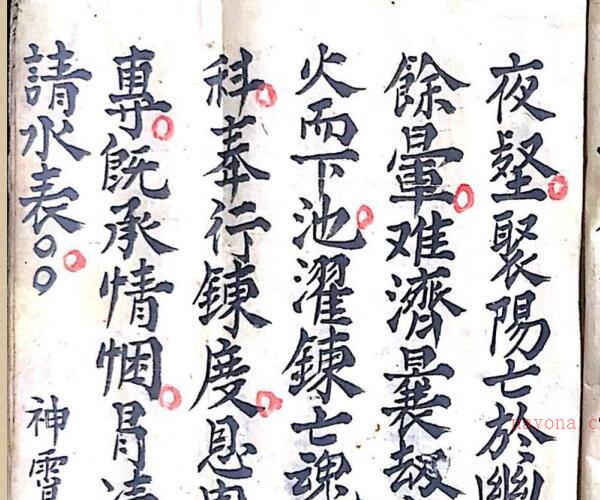 夜壑聚陽亡於幽
餘暈难濟曩劫
火而下池濯鍊亡魂
科奉行鍊度恳
專既承情悃冐
請水表
神霄